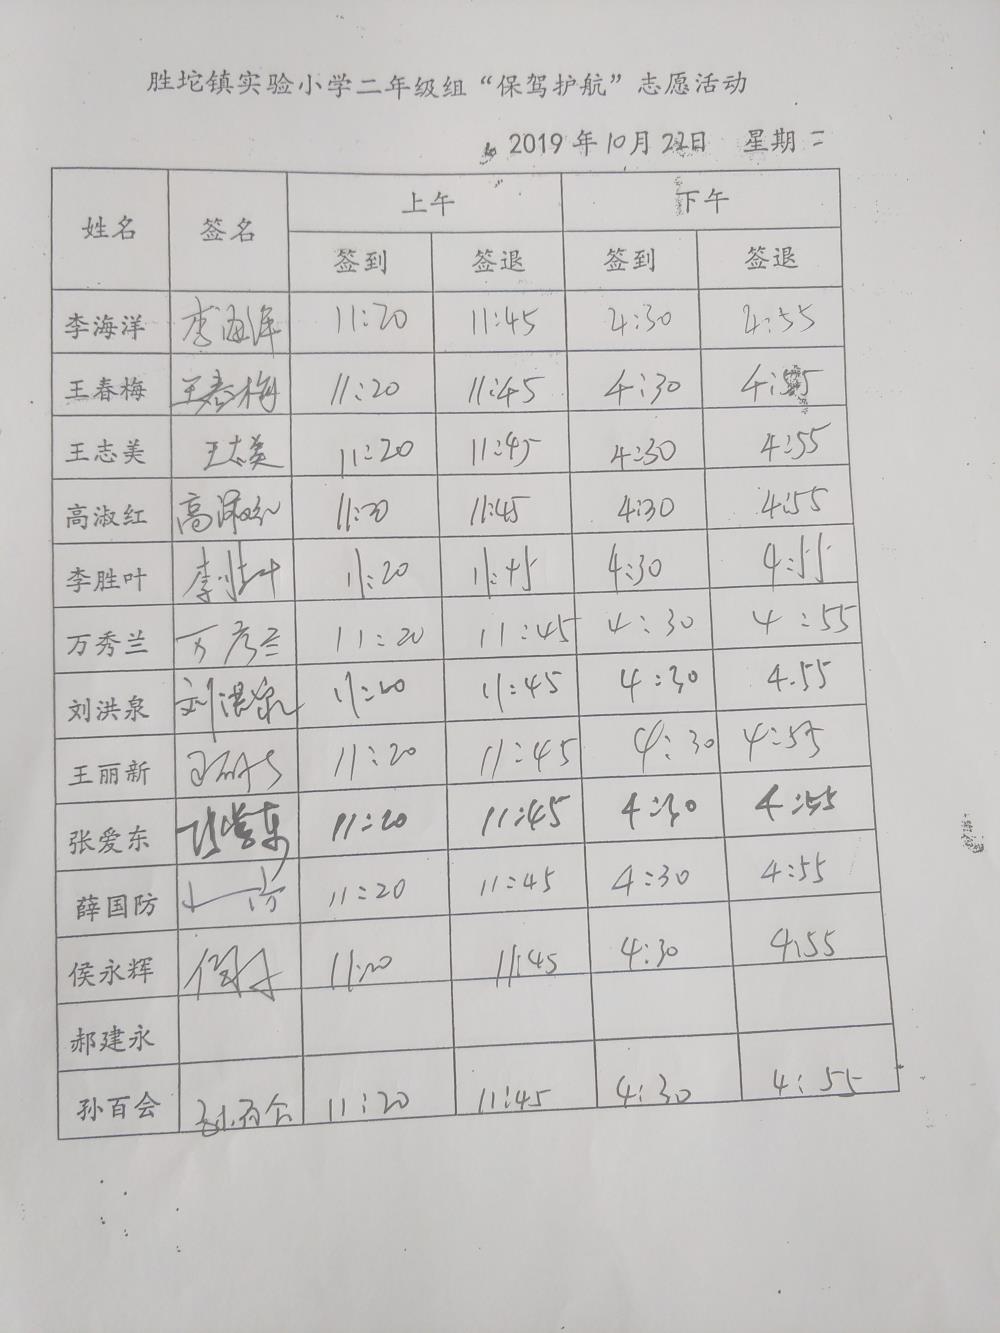 胜坨镇实验小学二年级组“保驾护航”志愿活动
2019年10月22日 星期二
姓名 签名 上午 下午
签到 签退 签到 签退
李海洋 李海洋 11:20 11:45 4:30 4:55
王春梅 王春梅 11:20 11:45 4:30 4:55
王志美 王志美 11:20 11:45 4:30 4:55
高淑红 高淑红 11:20 11:45 4:30 4:55
李胜叶 李胜叶 11:20 11:45 4:30 4:55
万秀兰 万秀兰 11:20 11:45 4:30 4:55
刘洪泉 刘洪泉 11:20 11:45 4:30 4.55
王丽新 11:20 11:45 4:30 4:55
张爱东 张爱东 11:20 11:45 4:30 4:55
薛国防 11:20 11:45 4:30 4:55
侯永辉 11:20 11:45 4:30 4:55
郝建永
孙百会 孙百会 11:20 11:45 4:30 4:55